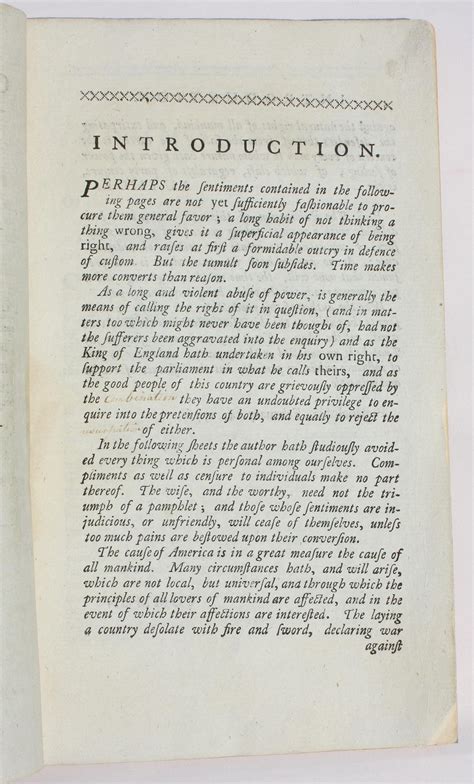 INTRODUCTION.
PERHAPS the ſentiments contained in the follow-
ing pages are not yet ſufficiently faſhionable to pro-
cure them general favor; a long habit of not thinking a
thing wrong, gives it a ſuperficial appearance of being
right, and raiſes at firſt a formidable outcry in defence
of cuſtom. But the tumult ſoon ſubſides. Time makes
more converts than reaſon.
As a long and violent abuſe of power, is generally the
means of calling the right of it in queſtion, (and in mat-
ters too which might never have been thought of, had not
the ſufferers been aggravated into the enquiry) and as the
King of England hath undertaken in his own right, to
ſupport the parliament in what he calls theirs, and as
the good people of this country are grievouſly oppreſſed by
the combination they have an undoubted privilege to en-
quire into the pretenſions of both, and equally to reject the
of either.
In the following ſheets the author hath ſtudiouſly avoid-
ed every thing which is perſonal among ourſelves. Com-
pliments as well as cenſure to individuals make no part
thereof. The wiſe, and the worthy, need not the tri-
umph of a pamphlet; and thoſe whoſe ſentiments are in-
judicious, or unfriendly, will ceaſe of themſelves, unleſs
too much pains are beſtowed upon their converſion.
The cauſe of America is in a great meaſure the cauſe of
all mankind. Many circumſtances hath, and will ariſe,
which are not local, but univerſal, and through which the
principles of all lovers of mankind are affected, and in the
event of which their affections are intereſted. The laying
a country deſolate with fire and ſword, declaring war
againſt